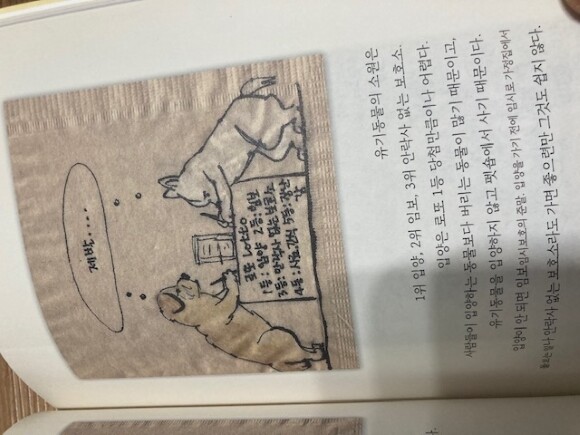 제발....
로또 Lotto
1등:입양 2등:임보
3등:안락사 없는 보호소
4등:사료,간식 5등:장난
감
유기동물의 소원은
1위 입양, 2위 임보, 3위 안락사 없는 보호소.
입양은 로또 1등 당첨만큼이나 어렵다.
사람들이 입양하는 동물보다 버리는 동물이 많기 때문이고,
유기동물을 입양하지 않고 펫숍에서 사기 때문이다.
입양이 안 되면 임보임시보호의 준말. 입양을 가기 전에 임시로 가정집에서
돌보는 일나 안락사 없는 보호소라도 가면 좋으련만 그것도 쉽지 않다.
다.